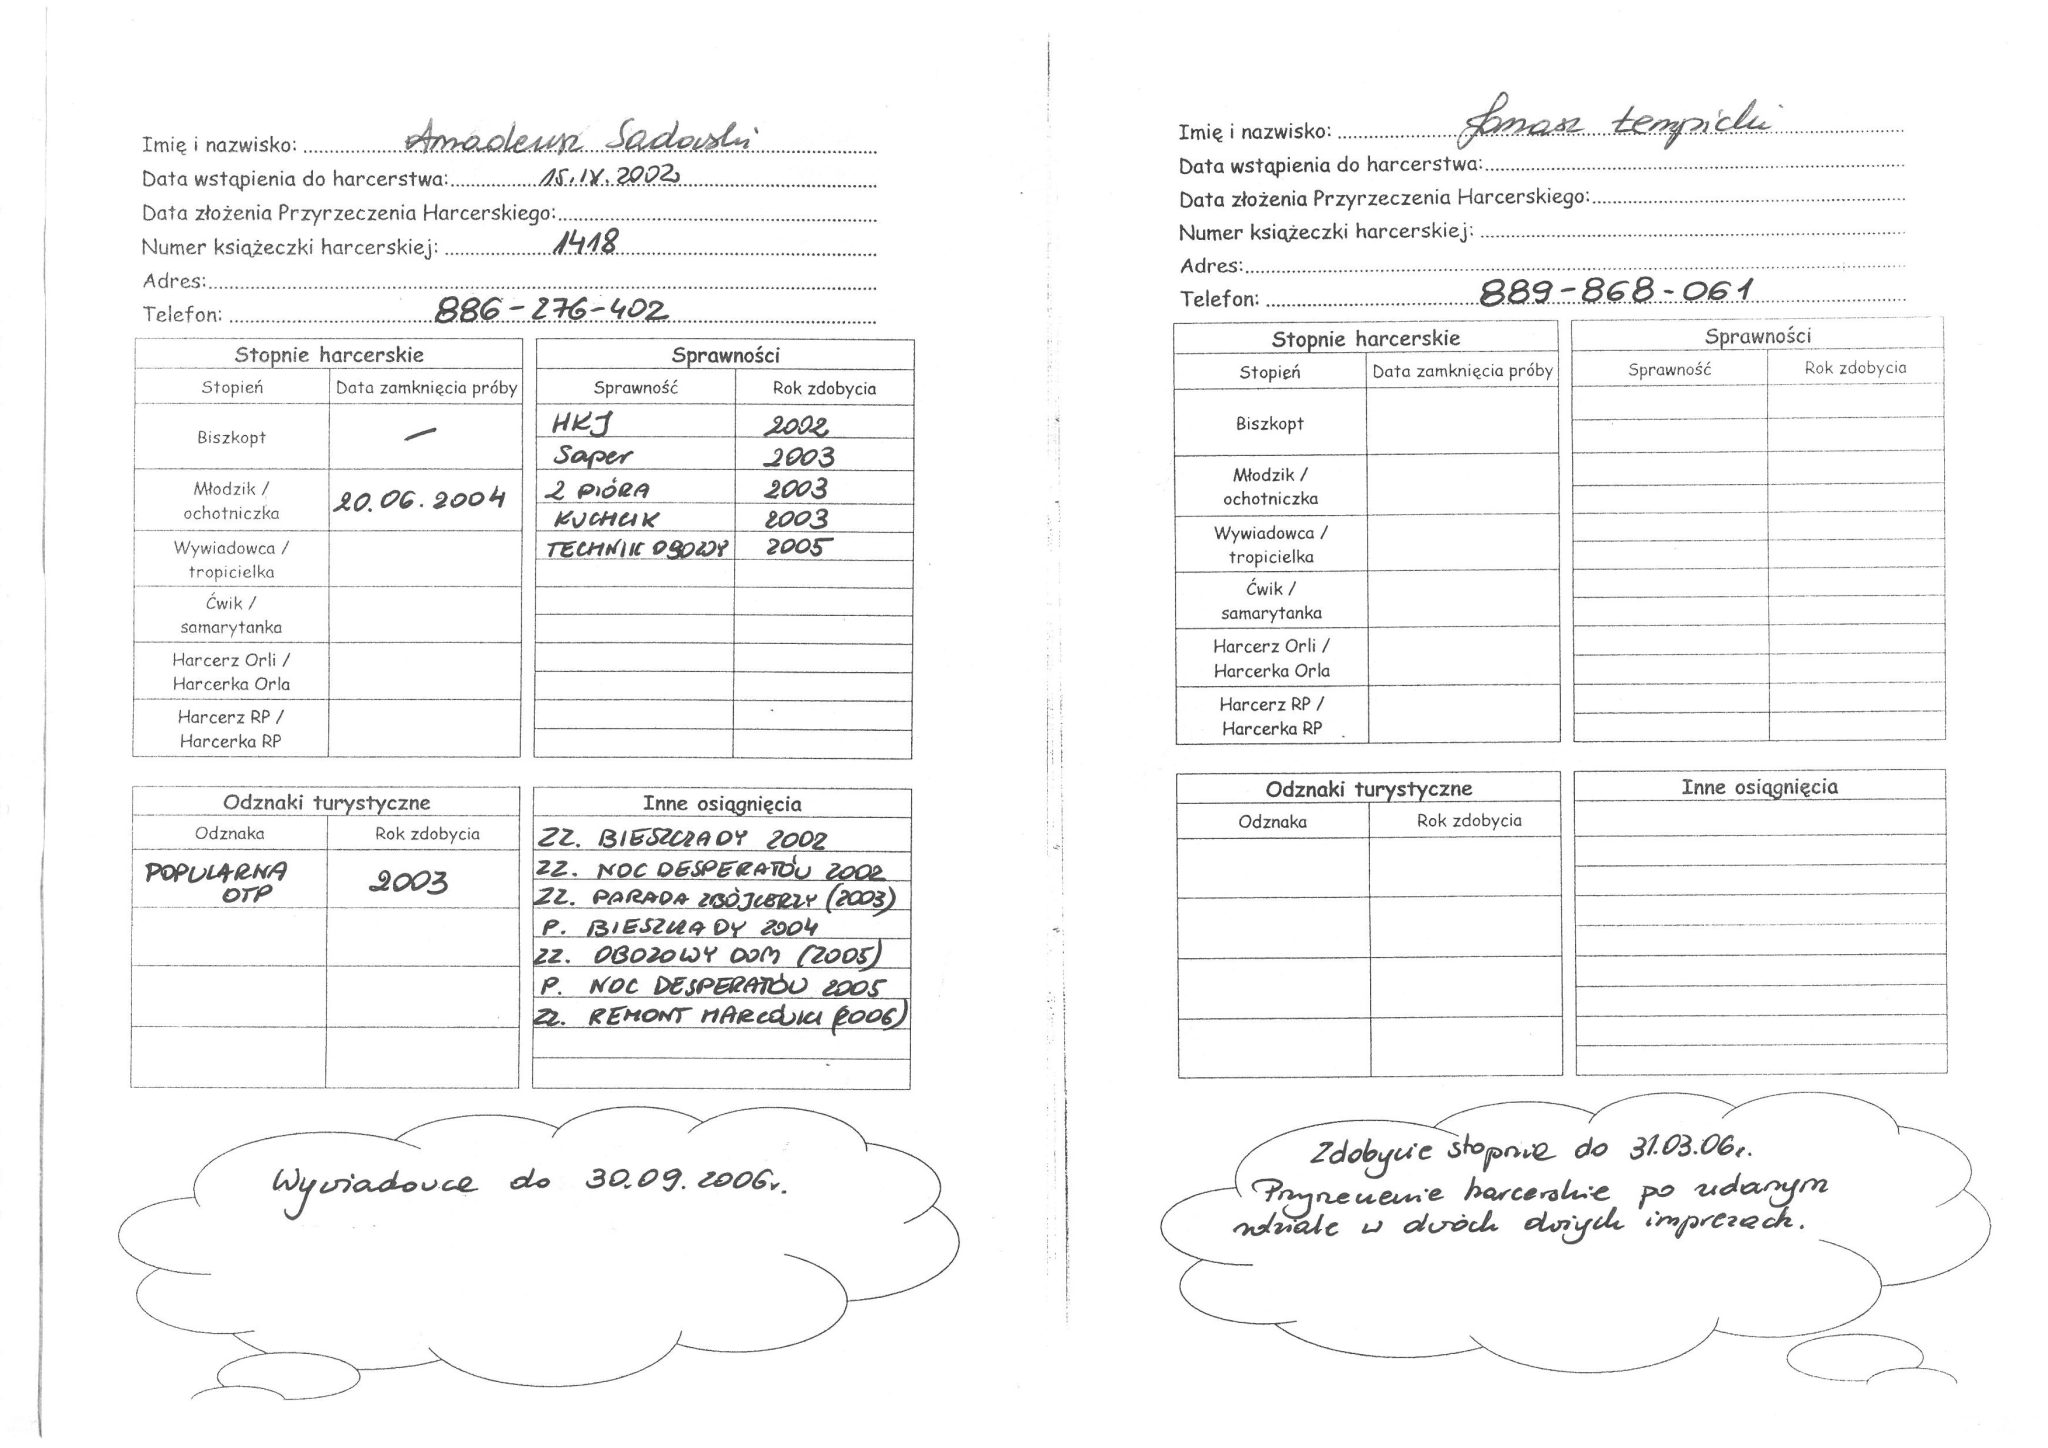 Imię i nazwisko: Amadeusz Sadowski
Data wstąpienia do harcerstwa: 15.IX.2002
Data złożenia Przyrzeczenia Harcerskiego:
Numer książeczki harcerskiej: 1418
Adres:
Telefon: 886-276-402
Stopnie harcerskie
Stopień Data zamknięcia próby
Biszkopt —
Młodzik / ochotniczka 20.06.2004
Wywiadowca / tropicielka
Ćwik / samarytanka
Harcerz Orli / Harcerka Orla
Harcerz RP / Harcerka RP
Sprawności
Sprawność Rok zdobycia
HKJ 2002
Saper 2003
2 PIÓRA 2003
KUCHCIK 2003
TECHNIK OBOZOWY 2005
Odznaki turystyczne
Odznaka Rok zdobycia
POPULARNA OTP 2003
Inne osiągnięcia
ZZ. BIESZCZADY 2002
ZZ. NOC DESPERATÓW 2002
ZZ. PARADA ZBÓJCERZY (2003)
P. BIESZCZADY 2004
ZZ. OBOZOWY DOM (2005)
P. NOC DESPERATÓW 2005
ZZ. REMONT HARCÓWKI (2006)
Wywiadowca do 30.09.2006r.
Imię i nazwisko: Janasz Łempicki
Data wstąpienia do harcerstwa:
Data złożenia Przyrzeczenia Harcerskiego:
Numer książeczki harcerskiej:
Adres:
Telefon: 889-868-061
Stopnie harcerskie
Stopień Data zamknięcia próby
Biszkopt
Młodzik / ochotniczka
Wywiadowca / tropicielka
Ćwik / samarytanka
Harcerz Orli / Harcerka Orla
Harcerz RP / Harcerka RP
Sprawności
Sprawność Rok zdobycia
Odznaki turystyczne
Odznaka Rok zdobycia
Inne osiągnięcia
Zdobycie stopnia do 31.03.06r.
Przyrzeczenie harcerskie po udanym
udziale w dwóch dużych imprezach.